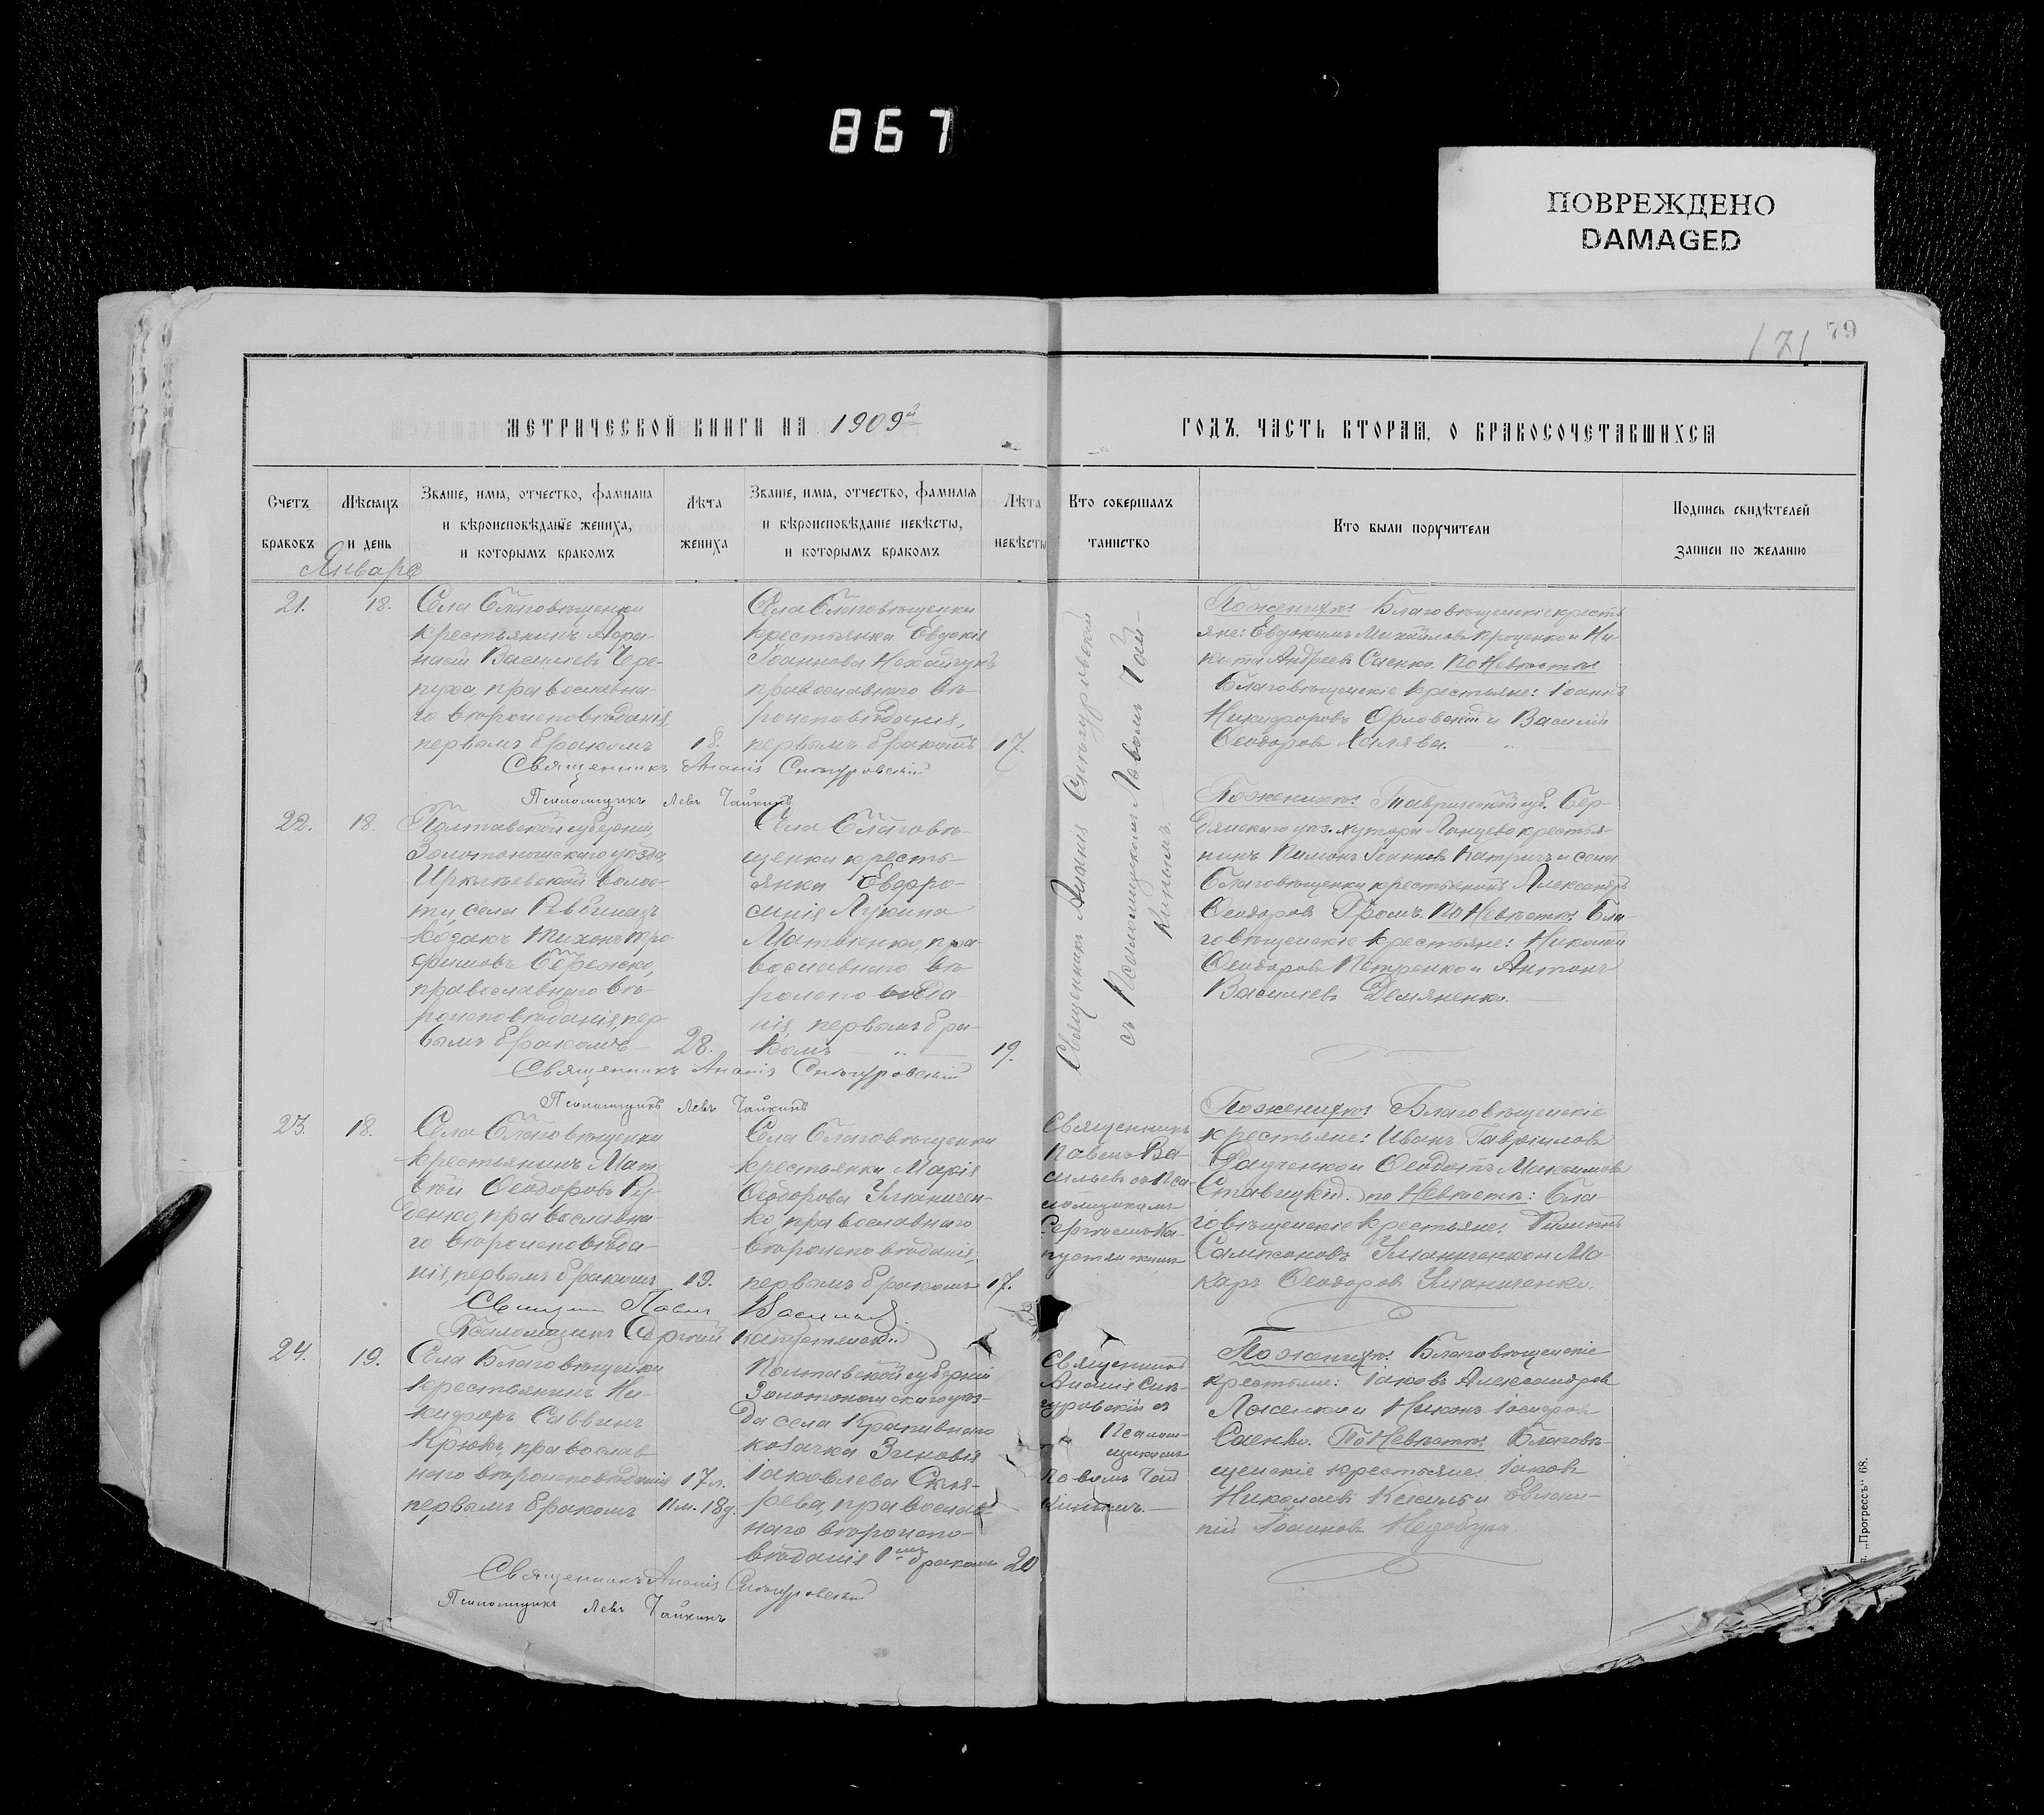 867
ПОВРЕЖДЕНО
DAMAGED
171 79
МЕТРИЧЕСКОЙ КНИГИ НА 1909й
ГОДЪ, ЧАСТЬ ВТОРАЯ, О БРАКОСОЧЕТАВШИХСЯ
Счетъ
браковъ
Мѣсяцъ
и день
Званіе, имя, отчество, фамилія
и вѣроисповѣданіе жениха,
и которымъ бракомъ
Лѣта
жениха
Званіе, имя, отчество, фамилія
и вѣроисповѣданіе невѣсты,
и которымъ бракомъ
Лѣта
невѣсты
Кто совершалъ
таинство
Кто были поручители
Подпись свидѣтелей
записи по желанію
Январь
21.
18.
Села Благовѣщенки
крестьянинъ Афа-
насій Василіевъ Чере-
пуха, православна-
го вѣроисповѣданія,
первымъ бракомъ
18.
Села Благовѣщенки
крестьянка Евдокія
Іоаннова
православнаго вѣ-
роисповѣданія,
первымъ бракомъ
17.
Священникъ Ананія Снѣгуровскій
съ Псаломщикомъ Львомъ Чай-
кинымъ.
По женихѣ: Благовѣщенскіе кресть
яне: Евдокимъ Михайловъ Проценко и Ни-
кита Андреевъ Саенко. По Невѣстѣ:
Благовѣщенскіе крестьяне: Іоаннъ
Никифоровъ Орловскій и Василій
Ѳеодоровъ Халява.
Священникъ Ананія Снѣгуровскій
Псаломщикъ Левъ Чайкинъ
22.
18.
Полтавской губерніи,
Золотоношскаго уѣзда,
Иркліевской волос-
ти, села
козакъ Тихонъ Тро-
фимовъ
православнаго вѣ-
роисповѣданія, пер-
вымъ бракомъ
28.
Села Благовѣ-
щенки кресть-
янка Евфро-
синія Лукина
Матвіенко, пра-
вославнаго вѣ-
роисповѣда-
нія, первымъ бра-
комъ
19.
По женихѣ: Таврической губ. Бер-
дянскаго уѣз. хутора крестья-
нинъ Іоанновъ и села
Благовѣщенки крестьянинъ Александръ
Ѳеодоровъ Громъ. По Невѣстѣ: Бла-
говѣщенскіе крестьяне: Николай
Ѳеодоровъ Петренко и Антонъ
Василіевъ Демяненко.
Священникъ Ананія Снѣгуровскій
Псаломщикъ Левъ Чайкинъ
23.
18.
Села Благовѣщенки
крестьянинъ Мат-
вѣй Ѳеодоровъ Ру-
денко, православна-
го вѣроисповѣда-
нія, первымъ бракомъ
19.
Села Благовѣщенки
крестьянка Марія
Ѳеодорова Уманичен-
ко, православнаго
вѣроисповѣданія,
первымъ бракомъ
17.
Священникъ
Павелъ Ва-
сильевъ съ Пса-
ломщикомъ
Сергѣемъ Ка-
пустянскимъ
По женихѣ: Благовѣщенскіе
крестьяне: Иванъ Гавріиловъ
и Ѳеодотъ Максимовъ
Ставицкій. по Невѣстѣ: Бла-
говѣщенскіе крестьяне:
Сампсоновъ Уманиченко и Ма-
каръ Ѳеодоровъ Уманиченко.
Священникъ Павелъ Васильевъ.
Псаломщикъ Сергѣй Капустянскій
24.
19.
Села Благовѣщенки
крестьянинъ Ни-
кифоръ Саввинъ
Крюкъ, православ-
наго вѣроисповѣданія
первымъ бракомъ
17 л.
11 м. 18 д.
Полтавской губерніи
Золотоношскаго уѣз-
да села Крапивнаго
козачка Зиновія
Іаковлева
православ-
наго вѣроиспо-
вѣданія 1мъ бракомъ
20
Священникъ
Ананія Снѣ-
гуровскій съ
Псалом-
щикомъ
Львомъ Чай
кинымъ.
По женихѣ: Благовѣщенскіе
крестьяне: Іаковъ Александровъ
и Никонъ Іосифовъ
Саенко. По Невѣстѣ: Благовѣ-
щенскіе крестьяне: Іаковъ
Николаевъ и Евлам-
пій Іоанновъ
Священникъ Ананія Снѣгуровскій
Псаломщикъ Левъ Чайкинъ
„Прогрессъ“ 68.